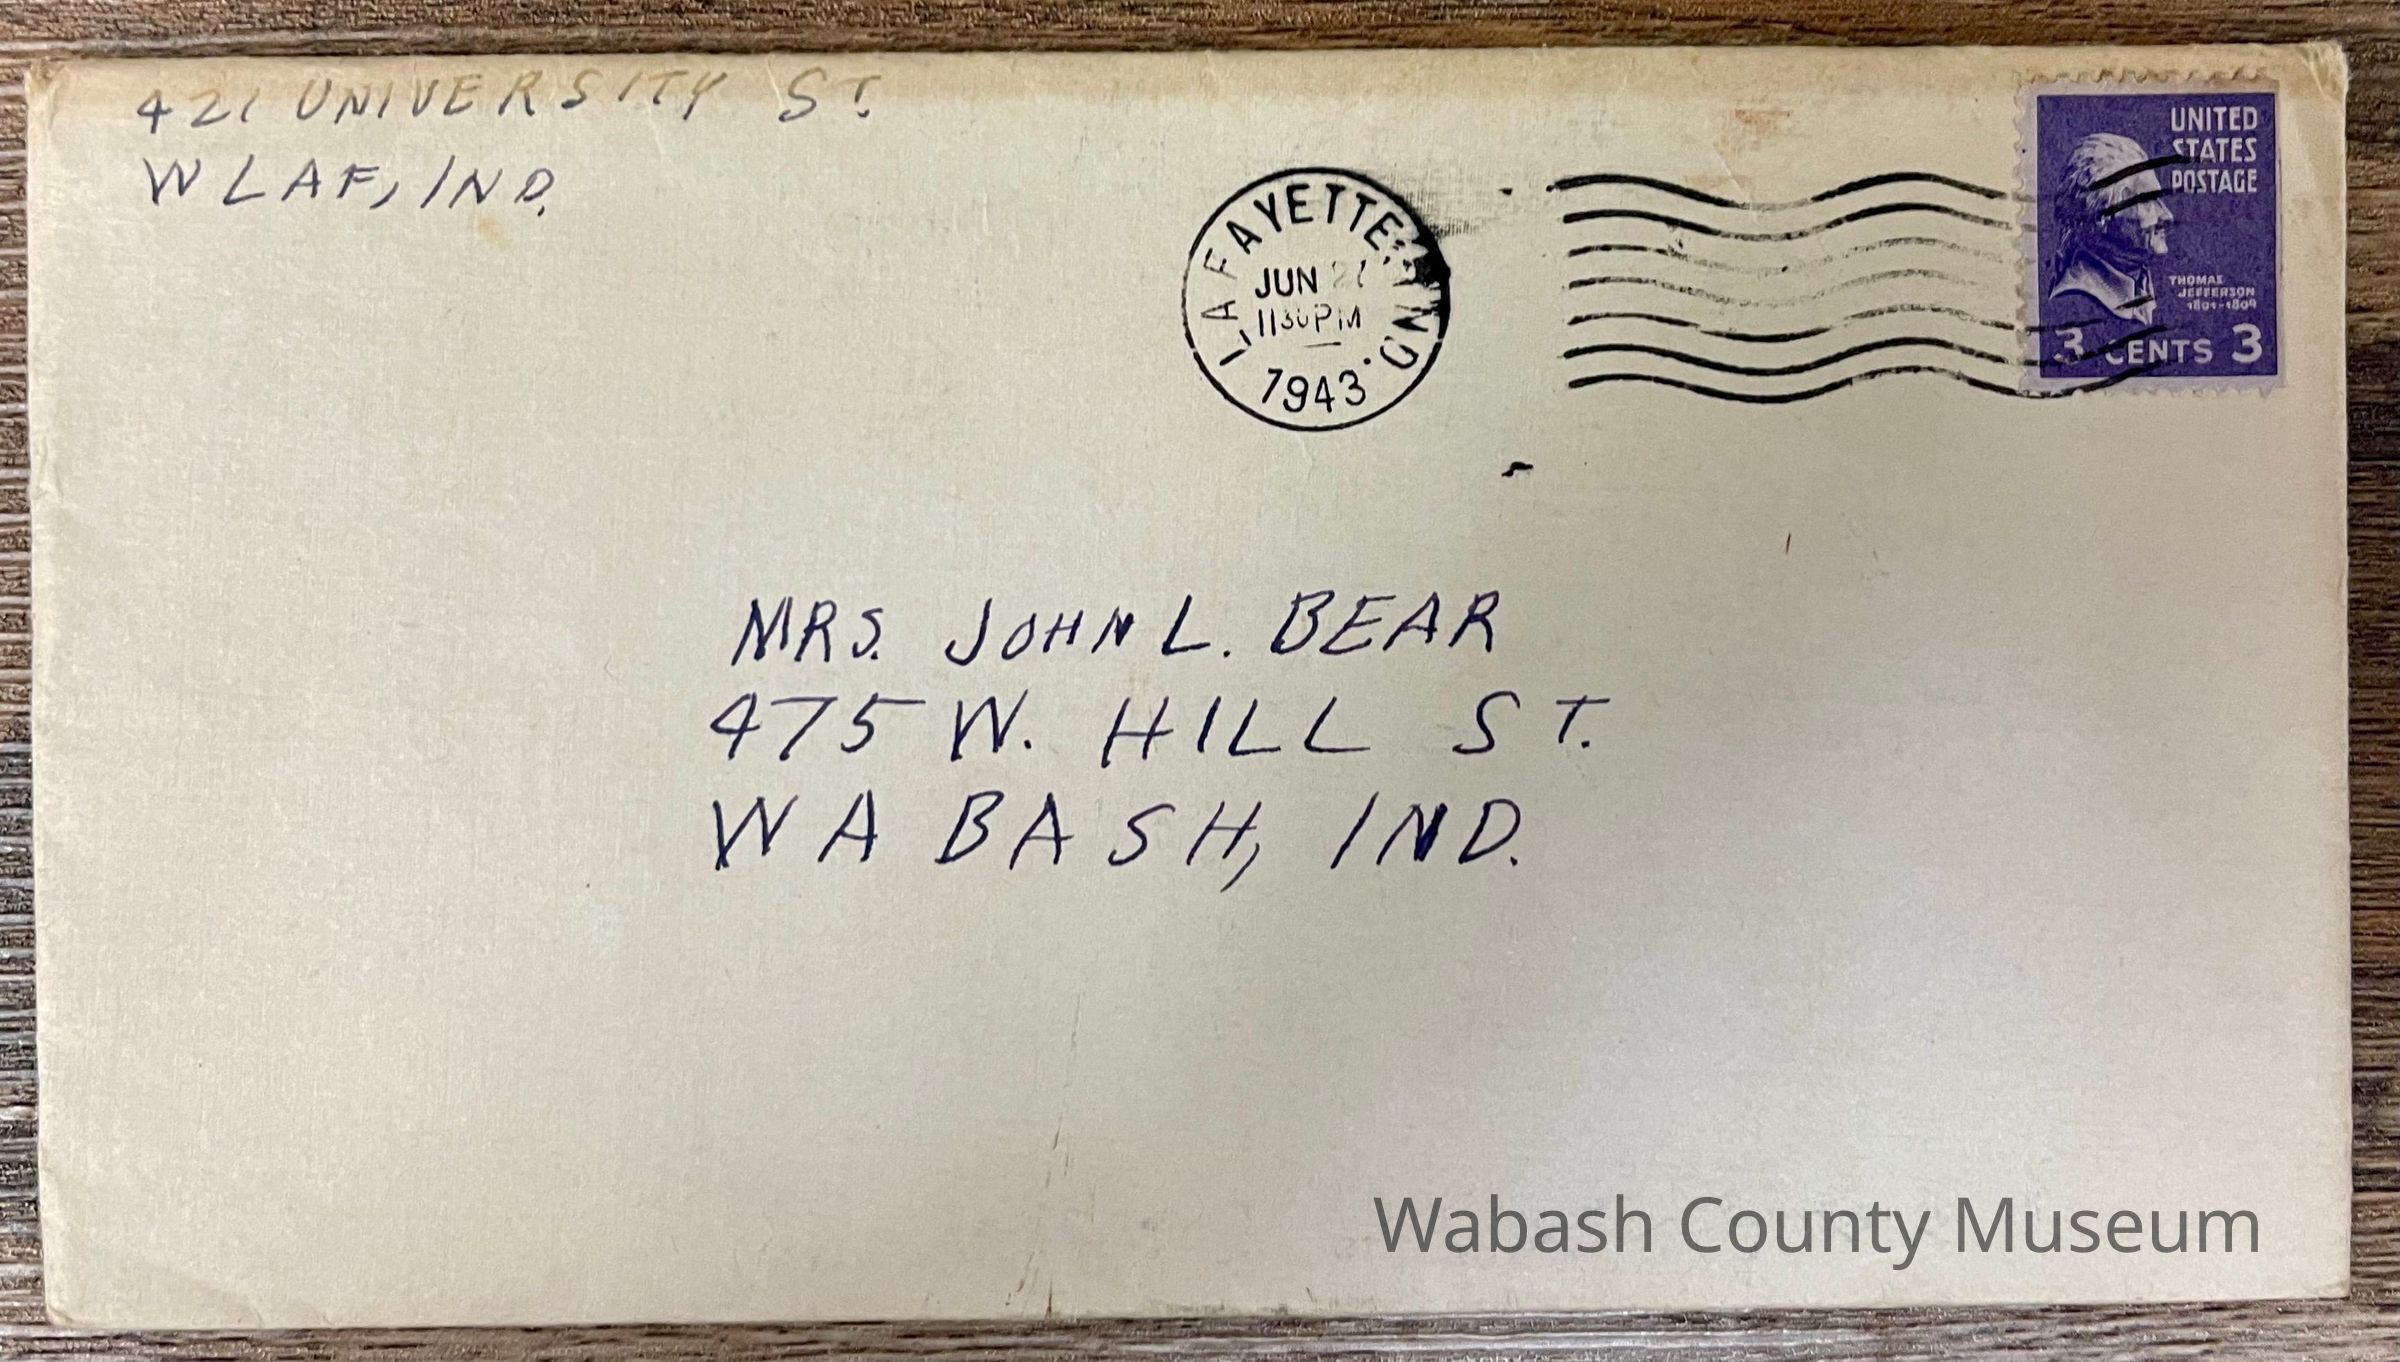 421 UNIVERSITY ST.
W LAF, IND.
LAFAYETTE, IND.
JUN
1130PM
1943
UNITED
STATES
POSTAGE
THOMAS
JEFFERSON
1801-1809
3 CENTS 3
MRS. JOHN L. BEAR
475 W. HILL ST.
WABASH, IND.
Wabash County Museum